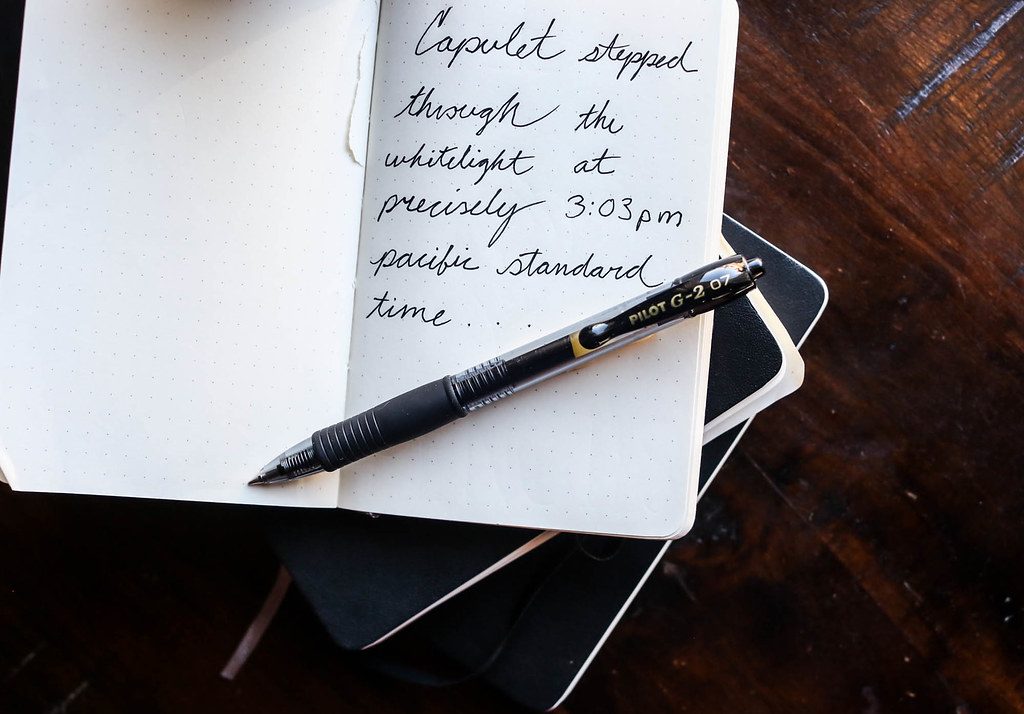 Capulet stepped
through the
whitelight at
precisely 3:03pm
pacific standard
time....
PILOT G-2 07